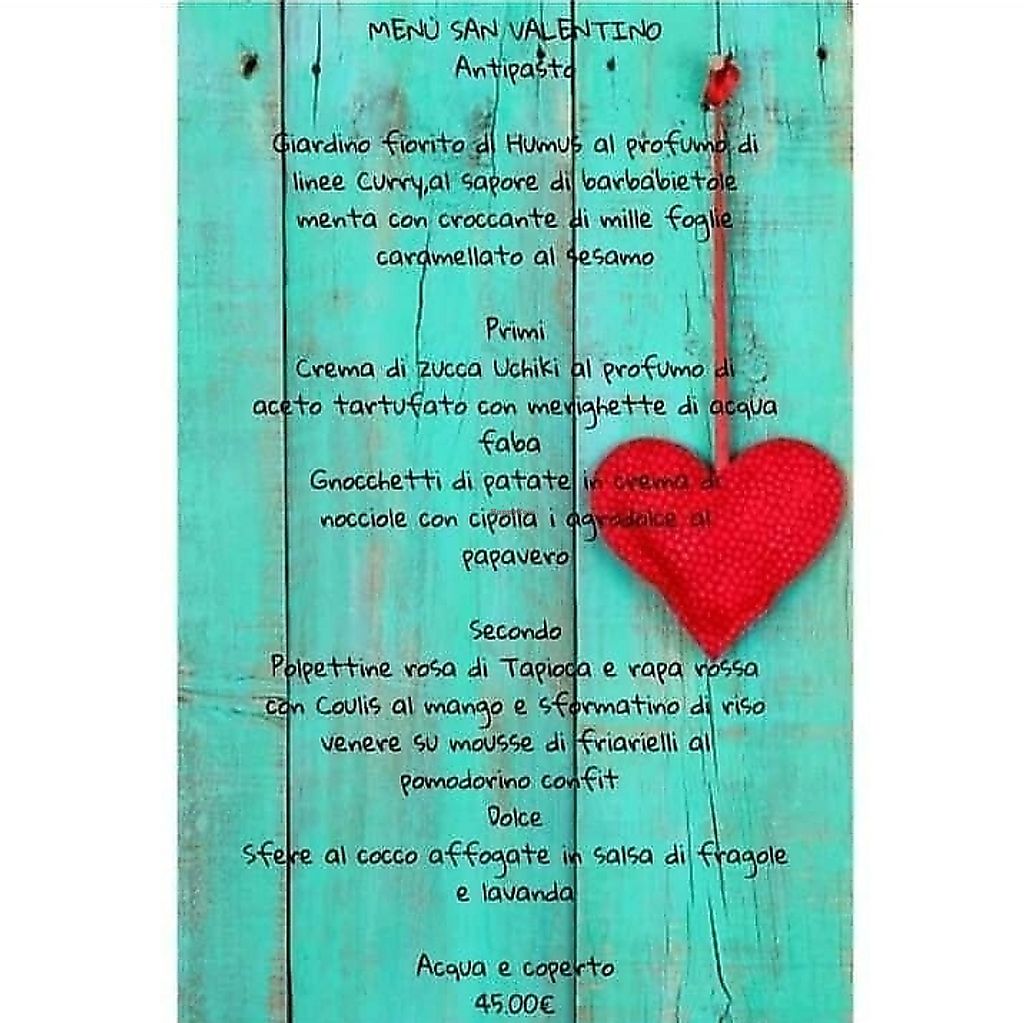 MENÙ SAN VALENTINO
Antipasto
Giardino fiorito di Humus al profumo di
linee Curry,al sapore di barbabietole
menta con croccante di mille foglie
caramellato al sesamo
Primi
Crema di zucca Uchiki al profumo di
aceto tartufato con merighette di acqua
faba
Gnocchetti di patate in crema di
nocciole con cipolla i agrodolce al
papavero
Secondo
Polpettine rosa di Tapioca e rapa rossa
con Coulis al mango e sformatino di riso
venere su mousse di friarielli al
pomodorino confit
Dolce
Sfere al cocco affogate in salsa di fragole
e lavanda
Acqua e coperto
45.00€